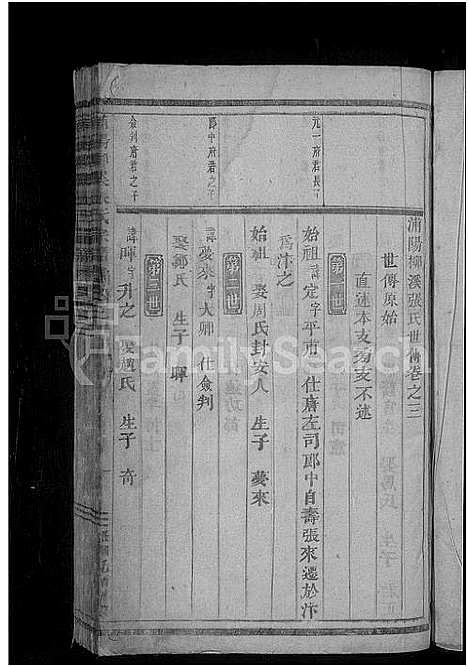 浦陽柳溪張氏世傳卷之三
世傳原始
直述本支旁支不述
第一世
元一府君長子
始祖諱定字平市仕唐左司郎中自壽張來遷於汴
為汴之
始祖娶周氏封安人生子夢來
第二世
郎中府君之子
諱夢來字大卿仕僉判
娶鄒氏生子暉
第三世
僉判府君之子
諱暉字升之娶趙氏生子奇
FamilySearch